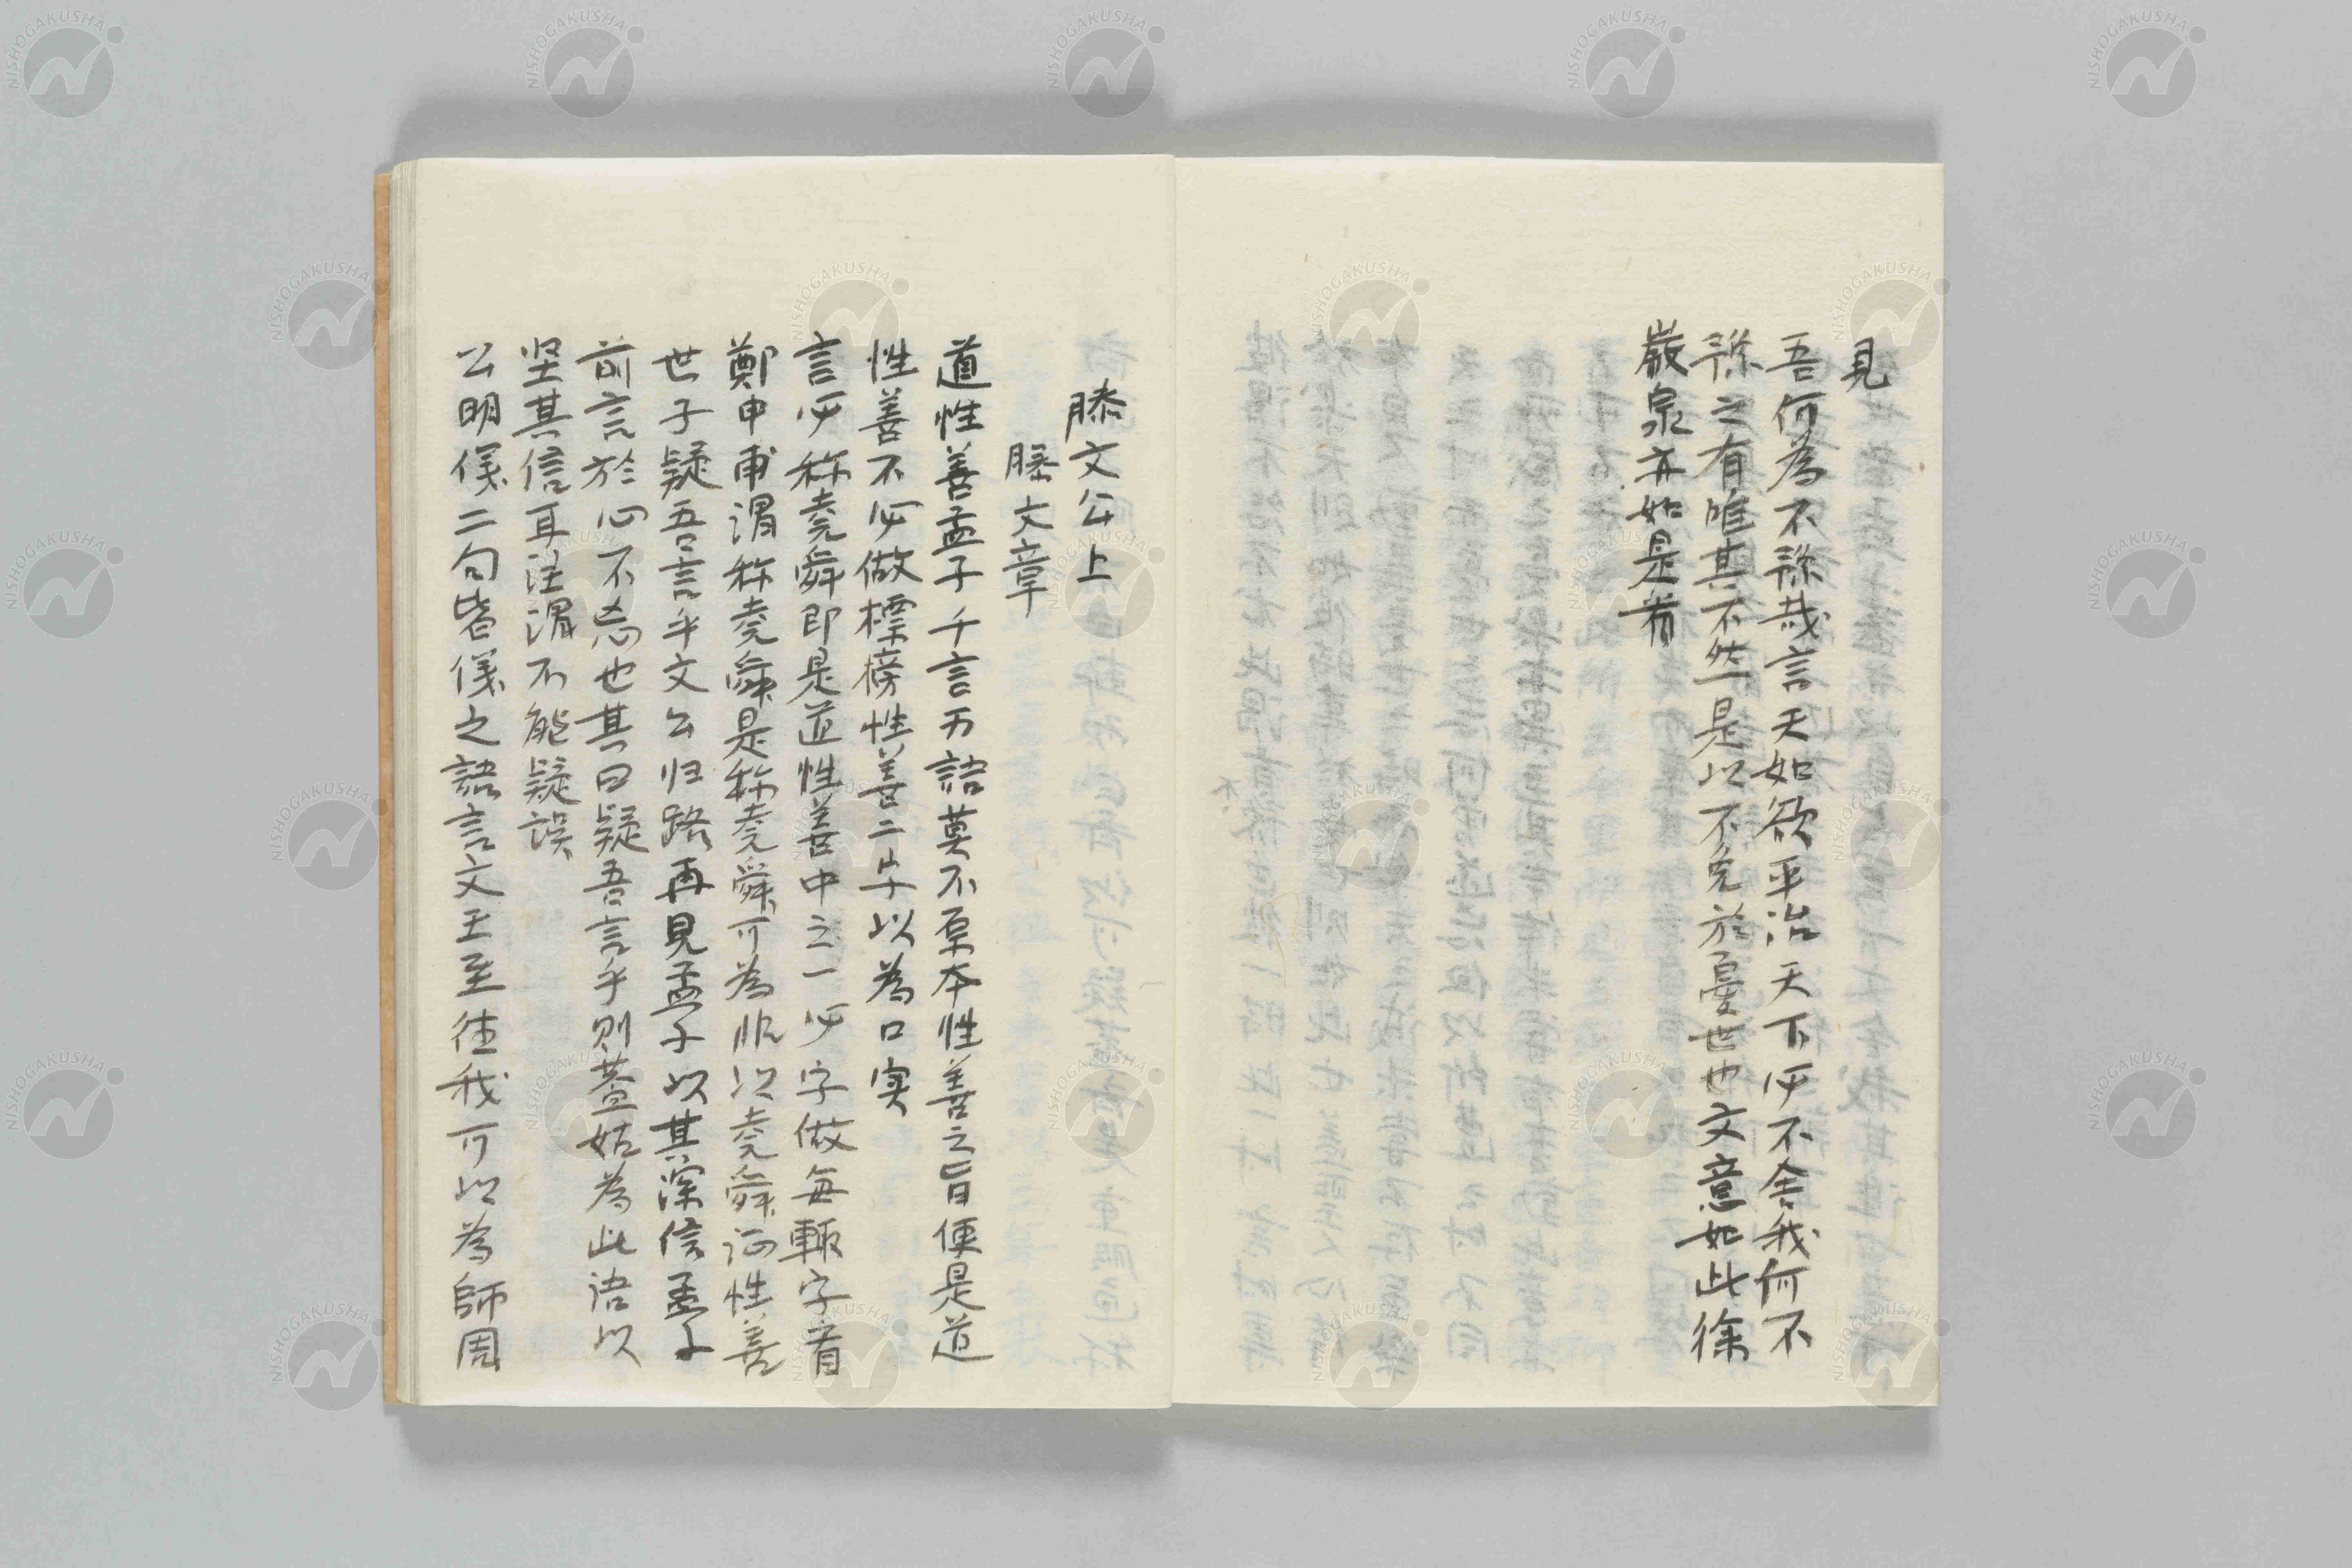 見
吾何為不豫哉言天如欲平治天下必不舍我何不
豫之有唯其不然是以不免於憂世也文意如此徐
嚴泉亦如是看
滕文公上
滕文章
道性善孟子千言万語莫不原本性善之旨便是道
性善不必做標榜性善二字以為口実
言必称堯舜即是道性善中之一必字做每輙字看
鄭申甫謂称堯舜是称堯舜可為非以堯舜証性善
世子疑吾言乎文公归路再見孟子以其深信孟子
前言於心不忘也其曰疑吾言乎則蓋姑為此语以
坚其信耳注謂不能疑誤
公明儀二句皆儀之語言文王至德我可以為師周
NISHOGAKUSHA